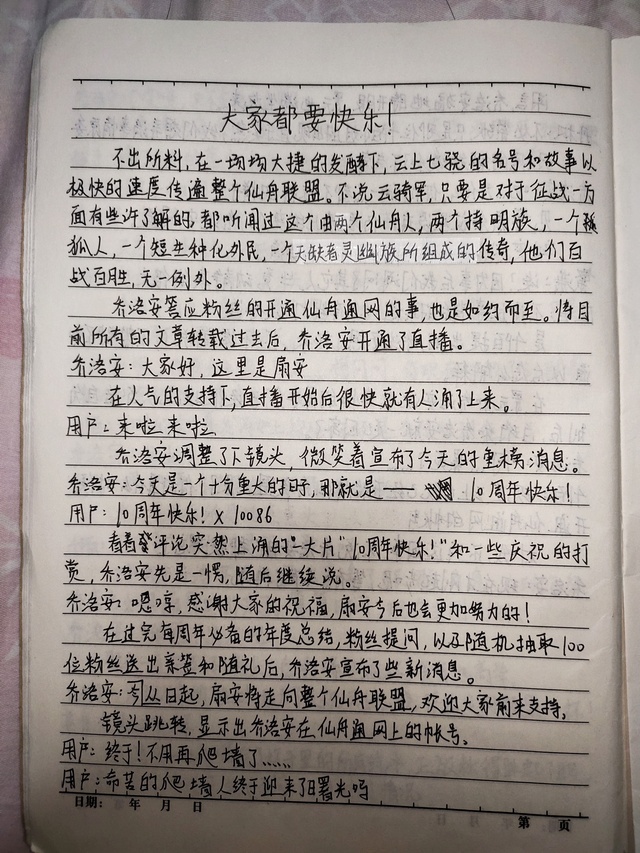 大家都要快乐!
不出所料,在一场场大捷的发酵下,云上七骁的名号和故事以
极快的速度传遍整个仙舟联盟。不说云骑军,只要是对于征战一方
面有些许了解的,都听闻过这个由两个仙舟人,两个持明族,一个
狐人,一个短生种化外民,一个天缺者灵幽族所组成的传奇,他们百
战百胜,无一例外。
乔洛安答应粉丝的开通仙舟通网的事,也是如约而至。将目
前所有的文章转载过去后,乔洛安开通了直播。
乔洛安:大家好,这里是扇安
在人气的支持下,直播开始后很快就有人涌了上来。
用户:来啦来啦
乔洛安调整了下镜头,微笑着宣布了今天的重磅消息。
乔洛安:今天是一个十分重大的日子,那就是——10周年快乐!
用户:10周年快乐!×10086
看着评论突然上涌的一大片"10周年快乐!"和一些庆祝的打
赏,乔洛安先是一愣,随后继续说。
乔洛安:嗯哼,感谢大家的祝福,扇安今后也会更加努力的!
在过完每周年必看的年度总结,粉丝提问,以及随机抽取100
位粉丝送出亲签和随礼后,乔洛安宣布了些新消息。
乔洛安:今从日起,扇安将走向整个仙舟联盟,欢迎大家前来支持。
镜头跳转,显示出乔洛安在仙舟通网上的帐号。
用户:终于!不用再爬墙了……
用户:命苦的爬墙人终于迎来了曙光吗
日期: 年 月 日
第 页